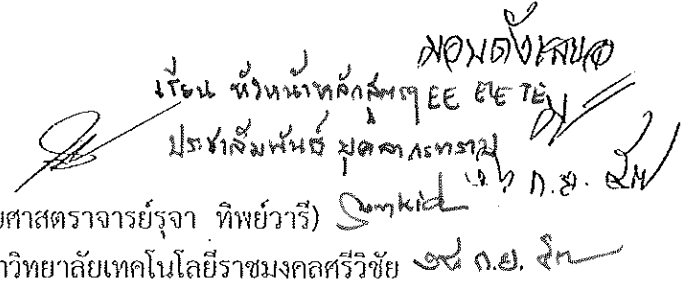 มอบดังเสนอ
เรียน หัวหน้าหลักสูตรฯ EE ETE TE
ประชาสัมพันธ์ บุคลากรทราบ
ก.ย.
ยศาสตราจารย์รุจา ทิพย์วารี) Somkid
าวิทยาลัยเทคโนโลยีราชมงคลศรีวิชัย ก.ย.